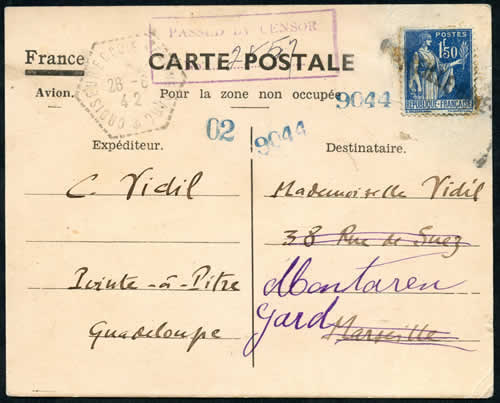 PASSED BY CENSOR
France
CARTE POSTALE
POSTES
1F50
RÉPUBLIQUE-FRANÇAISE
Avion.
Pour la zone non occupée
9044
42
02
9044
Expéditeur.
Destinataire.
C. Vidil
Mademoiselle Vidil
38 Rue de Suez
Pointe-à-Pitre
Montaren
Guadeloupe
Gard
Marseille